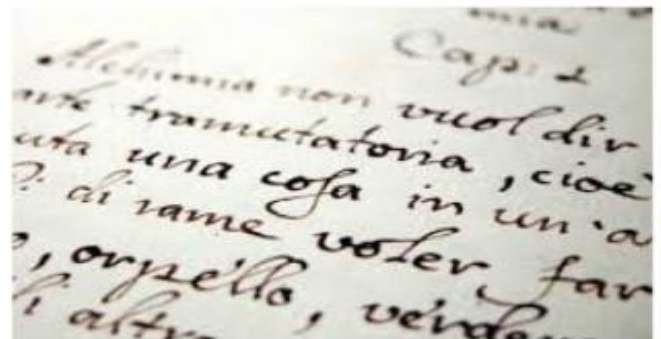 mia.
Cap: 1
Alchimia non vuol dir
arte tramutatoria, cioè
uta una cosa in un'a
di rame voler far
, orpello, verde
li altr